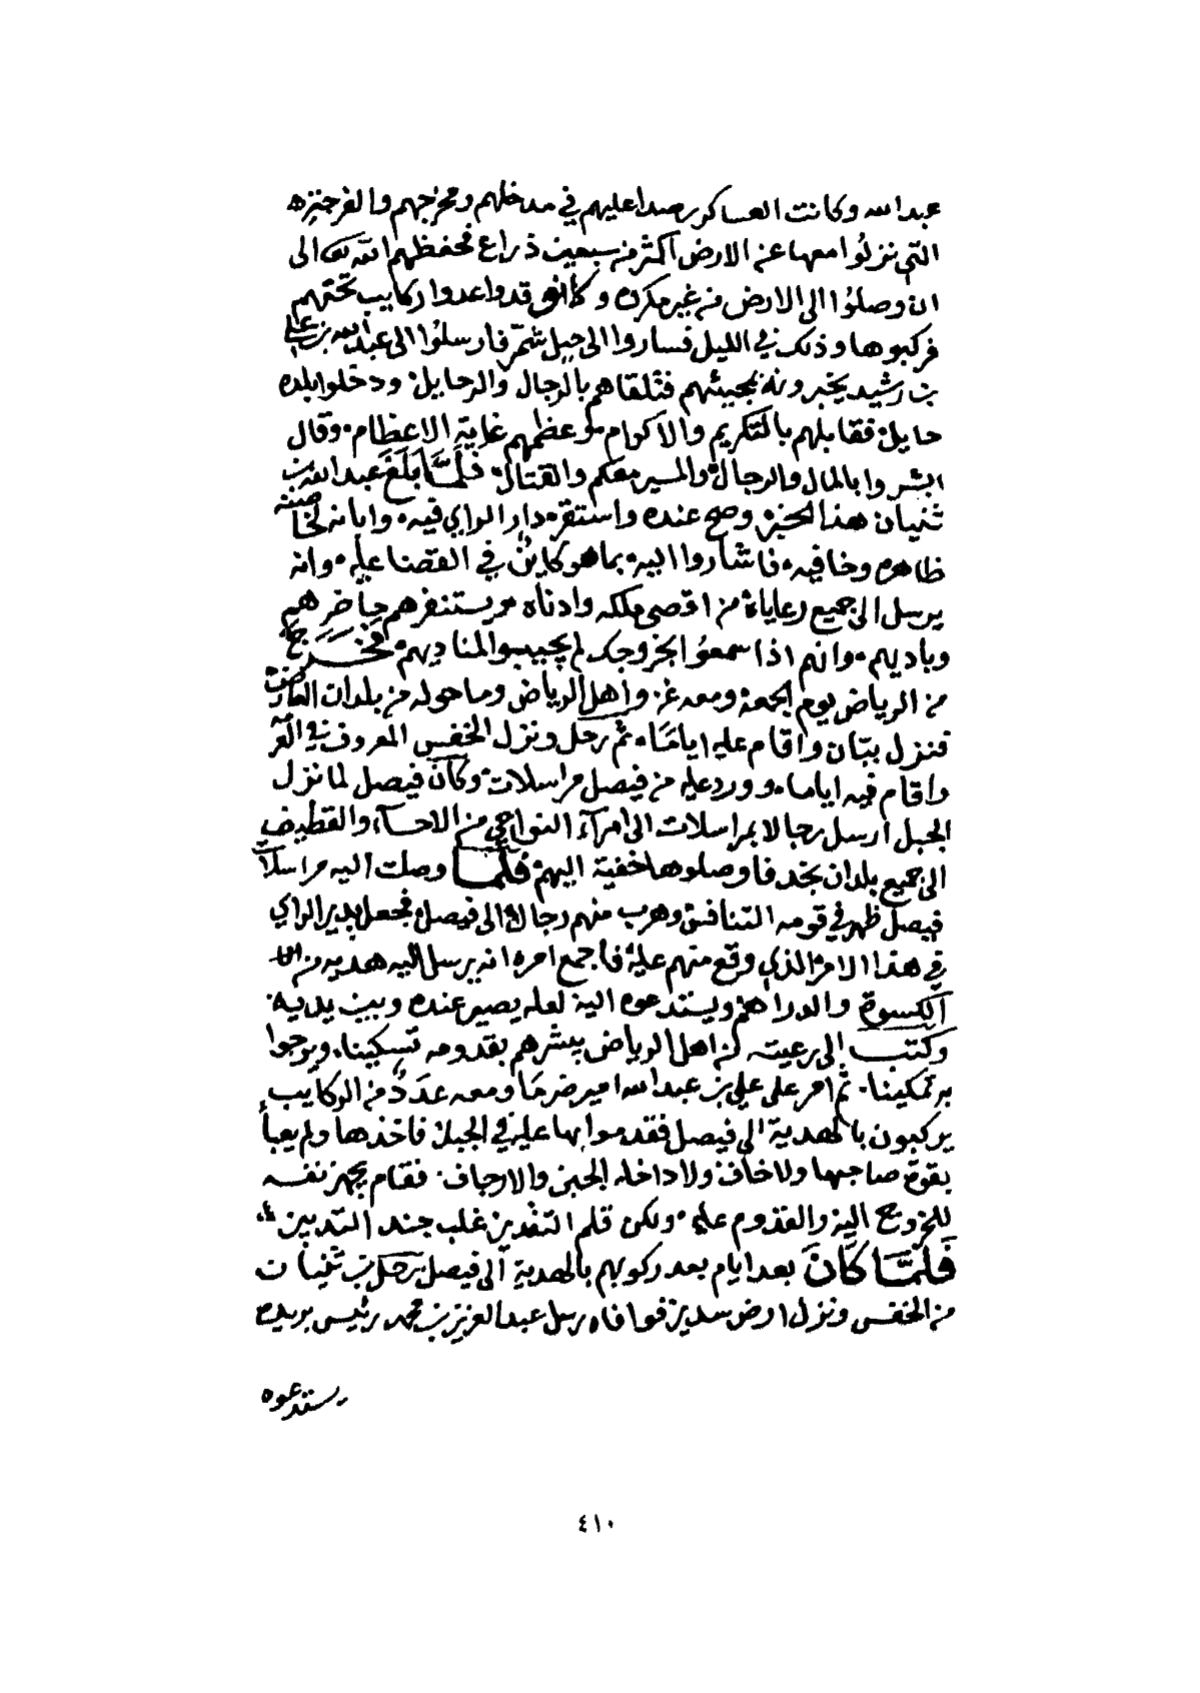 عبدالله وكانت العساكر رصدا عليهم في مدخلهم ومخرجهم والفرجة
التي نزلوا معها عن الارض اكثر من سبعين ذراع فحفظهم الله الى
ان وصلوا الى الارض من غير مكره وكانوا قد واعدوا ركايب تحتهم
فركبوها وذلك في الليل فساروا الى جبل شمر فارسلوا الى عبدالله بن علي
بن رشيد يخبرونه بمجيئهم فتلقاهم بالرجال والرحايل ودخلوا بلده
حايل فقابلهم بالتكريم والاكرام وعظمهم غاية الاعظام وقال
ابشروا بالمال والرجال والمسير معكم والقتال فلما بلغ عبدالله بن
ثنيان هذا الخبر وصح عنده واستقر دار الراي فيه وابانه لخاصته
ظاهره وخافيه فاشاروا اليه بما هو كاين في القضا عليه وانه
يرسل الى جميع رعاياه من اقصى ملكه وادناه ويستنفرهم حاضرهم
وباديهم وانهم اذا سمعوا بخروجك لم يجيبوا لمناديهم فخرج
من الرياض يوم الجمعة ومعه غزو اهل الرياض وما حوله من بلدان العارض
فنزل ببنبان واقام عليه اياما ثم رحل ونزل الخفس المعروف في العرمة
واقام فيه اياما وورد عليه من فيصل مراسلات وكان فيصل لما نزل
الجبل ارسل رجالا بمراسلات الى امرآء النواحي من الاحسآء والقطيف
الى جميع بلدان نجد فاوصلوها خفية اليهم فلما وصلت اليه مراسلات
فيصل ظهر في قومه التنافس وهرب منهم رجال الى فيصل فجعل يدير الراي
في هذا الامر الذي وقع منهم عليه فاجمع امره انه يرسل اليه هدية من
الكسوة والدراهم ويستدعوه اليه لعله يصير عنده وبين يديه
وكتب الى رعيته من اهل الرياض يبشرهم بقدومه تسكينا ويرجوا
به تمكينا ثم امر على علي بن عبدالله امير ضرما ومعه عدد من الركايب
يركبون بالهدية الى فيصل فقدموا بها عليه في الجبل فاخذها ولم يعبأ
بقوة صاحبها ولا خاف ولا داخله الجبن والارجاف فقام يجهز نفسه
للخروج اليه والقدوم عليه ولكن قلم التقدير غلب جند التدبير
فلما كان بعد ايام بعد ركوبهم بالهدية الى فيصل رحل بن ثنيان
من الخفس ونزل ارض سدير فوافاه رسل عبدالعزيز بن محمد رئيس بريده
يستدعوه
٤١٠